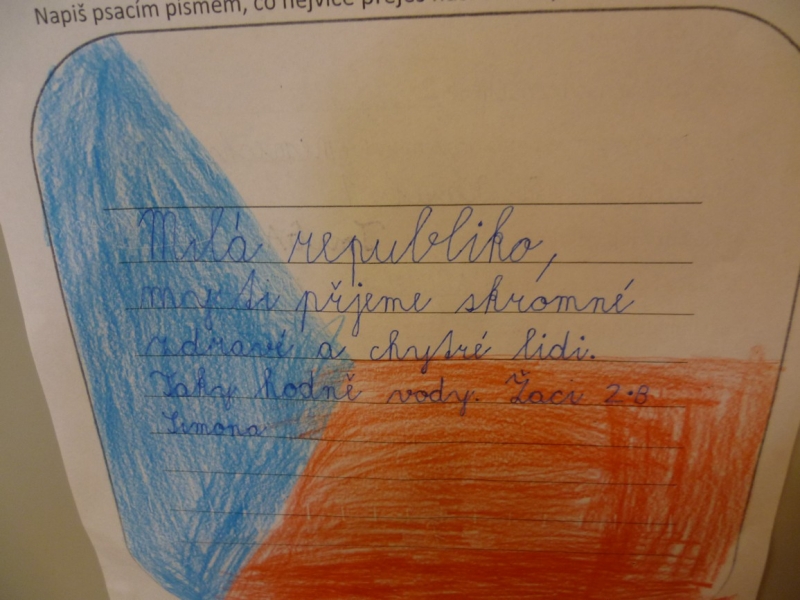 Napiš psacím písmem, co nejvíce přeješ
Milá republiko,
my ti přjeme skromné
zdravé a chytré lidi.
Taky hodně vody. Žáci 2.B
Simona